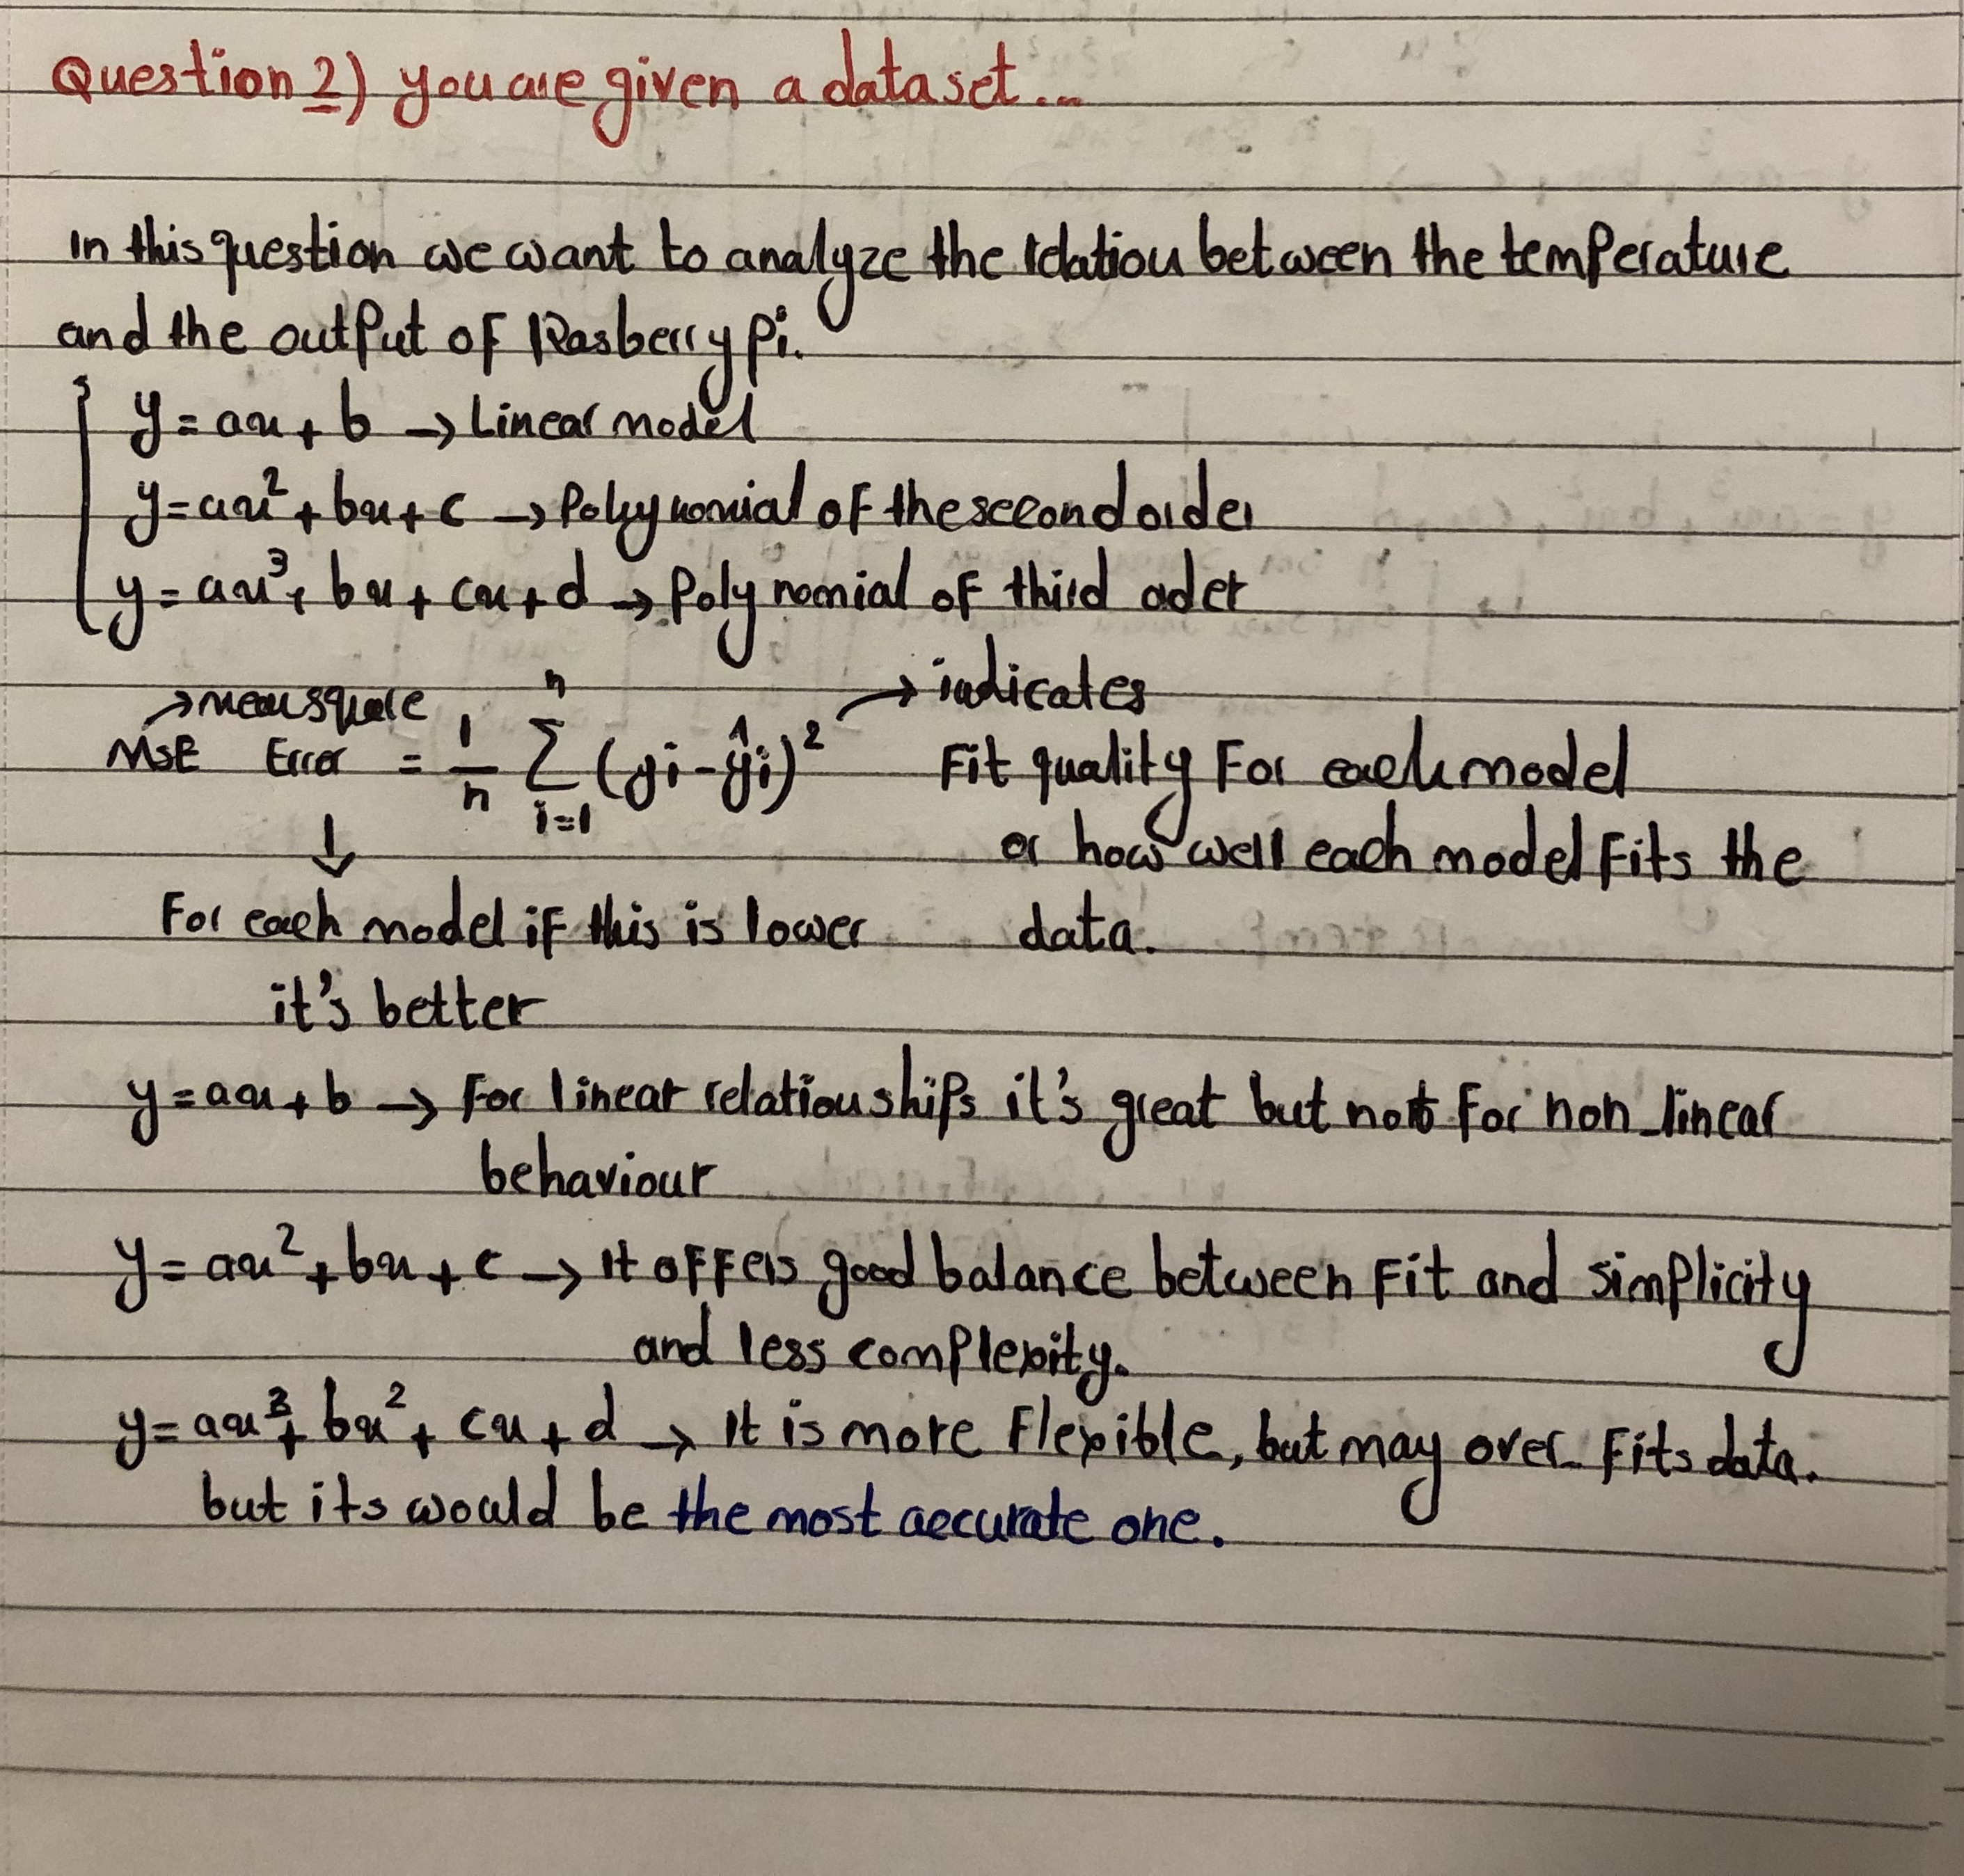 Question 2) you are given a dataset...
In this question we want to analyze the relation between the temperature
and the output of Rasberry pi.
y = ax + b → Linear model
y = ax² + bx + c → Polynomial of the second order
y = ax³ + bx + cx + d → Polynomial of third oder
→ mean square
MSE Error = 1/n Σ_{i=1}^{n} (yi - ŷi)² → indicates
Fit quality For each model
or how well each model Fits the
data.
↓
For each model if this is lower
it's better
y = ax + b → For linear relationships it's great but not for non-linear
behaviour
y = ax² + bx + c → It offers good balance between Fit and simplicity
and less complexity.
y = ax³ + bx² + cx + d → It is more Flexible, but may over-Fits data.
but its would be the most accurate one.